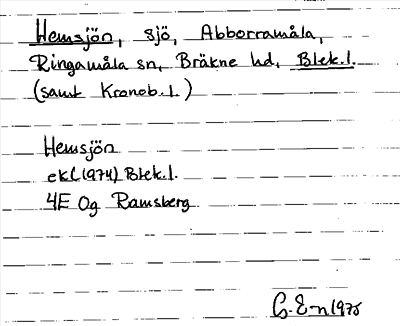 Hemsjön, sjö, Abborramåla,
Ringamåla sn, Bräkne hd, Blek.l.
(samt Kronob.l.)
Hemsjön
ek (1974) Blek.l.
4E Og Ramsberg
G.E-n 1975